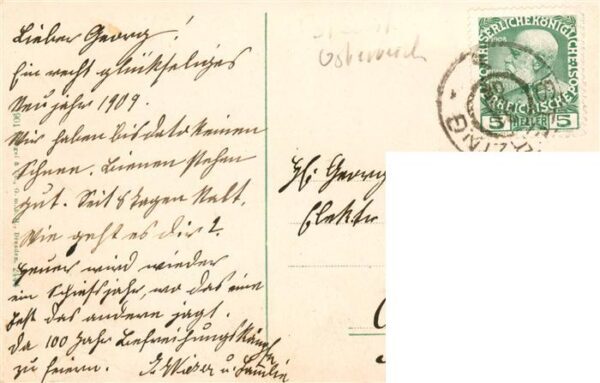 Lieber Georg!
Ein recht glückseliges
Neujahr 1909.
Wir haben bis dato keinen
Schnee. Bienen stehen
gut. Seit 8 Tagen kalt.
Wie geht es dir?
Heuer wird wieder
ein Schießjahr, wo das eine
Fest das andere jagt.
Da 100 Jahr Befreiungskämpfe
zu feiern.
u. Familie
Österreich
1908
KAISERLICHE KÖNIGLICHE
ÖSTERREICHISCHE POST
5 HELLER 5
Georg
Elektr